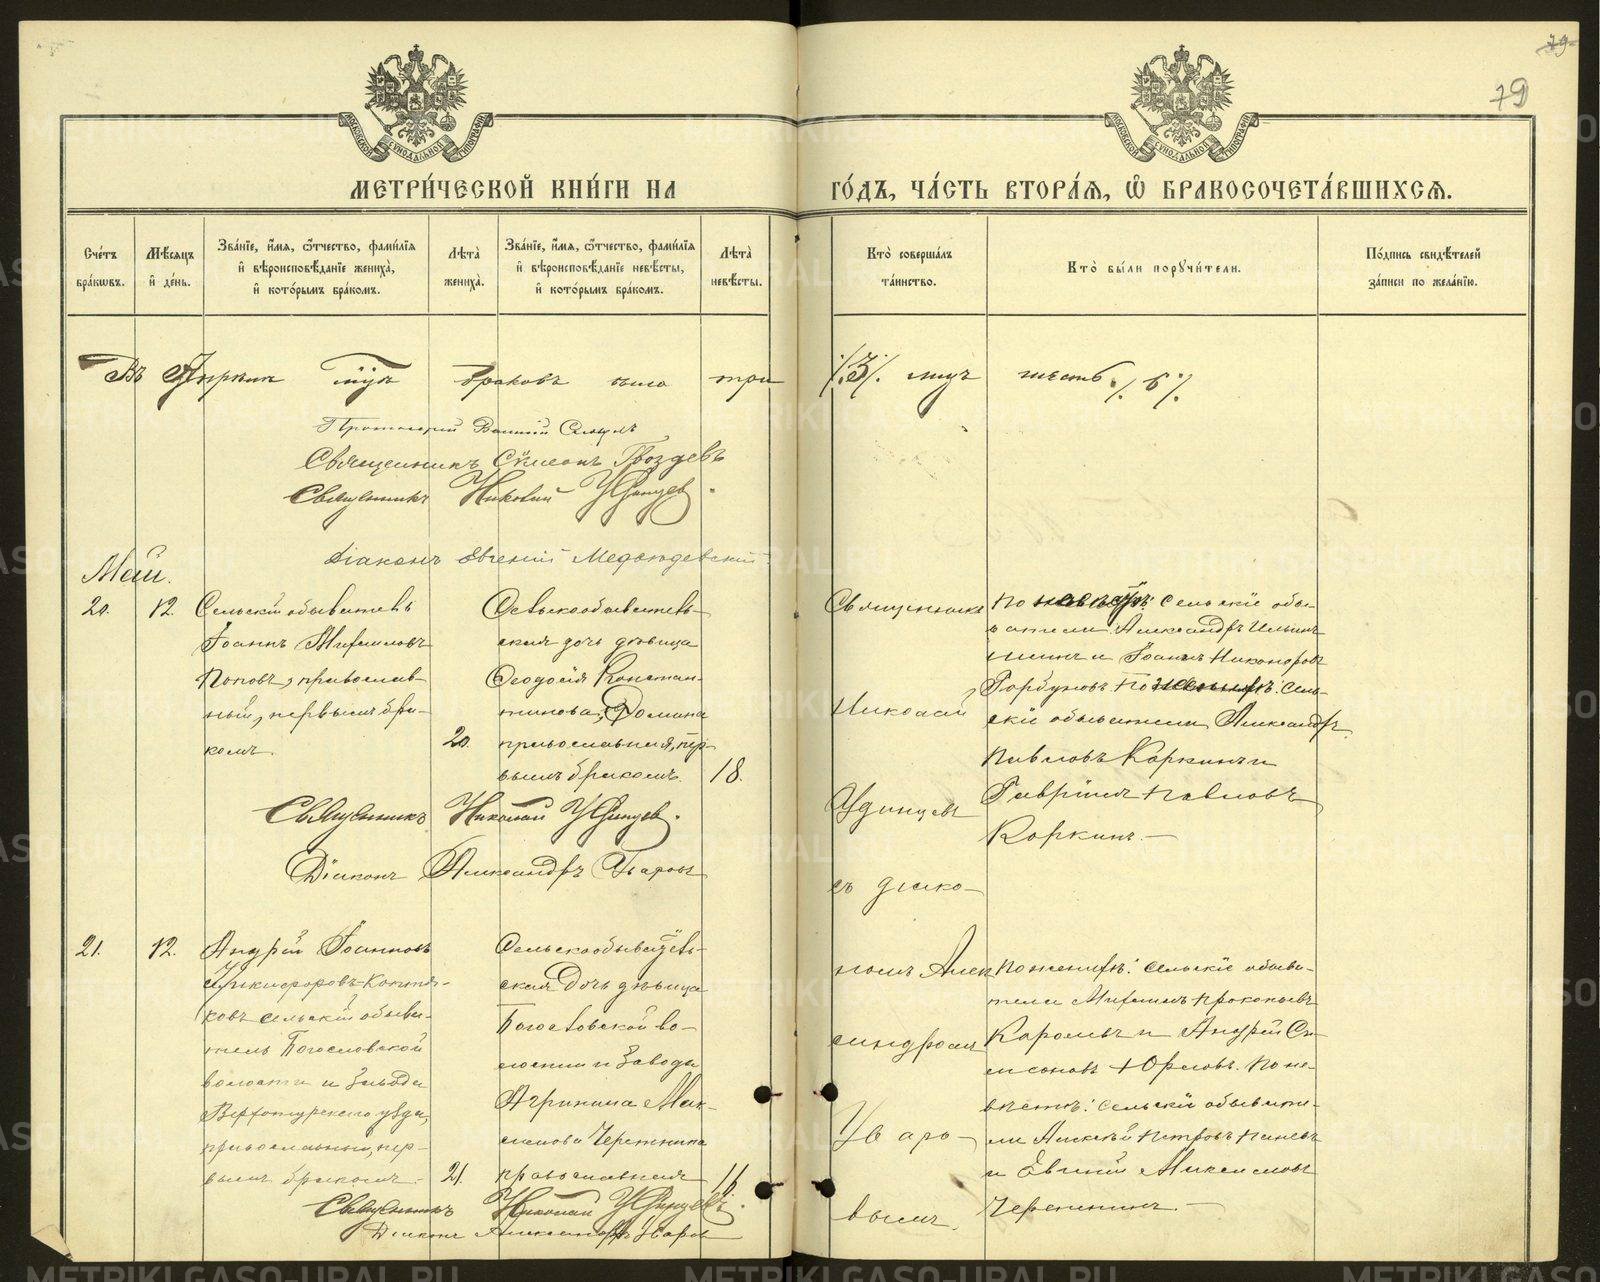 79
79
МЕТРИ́ЧЕСКОЙ КНИ́ГИ НА
ГО́ДЪ, ЧА́СТЬ ВТОРА́Я, Ѽ БРАКОСОЧЕТА́ВШИХСѦ.
Сче́тъ бра́кѡвъ.
Мѣ́сяцъ и҆ де́нь.
Зва́нїе, и҆́мя, ѻ҆́тчество, фами́лїя и҆ вѣроисповѣ́данїе жениха̀, и҆ кото́рымъ бра́комъ.
Лѣ́та жениха̀.
Зва́нїе, и҆́мя, ѻ҆́тчество, фами́лїя и҆ вѣроисповѣ́данїе невѣ́сты, и҆ кото́рымъ бра́комъ.
Лѣ́та невѣ́сты.
Кто̀ соверша́лъ та́инство.
Кто̀ бы́ли поручи́тели.
По́дпись свидѣ́телей за́писи по жела́нїю.
браковъ было три /.3./ лицъ шесть /.6./
Протоіерей
Священникъ Сѷмеонъ Гвоздевъ
Священникъ Николай Удинцев.
Діаконъ Евгеній
Май.
20.
12.
Сельскій обыватель
Іоаннъ Михаиловъ
Поповъ, православ-
ный, первымъ бра-
комъ.
20.
Сельскообыватель-
ская дочь дѣвица
Ѳеодосія Констан-
тинова Ѳомина
православная, пер-
вымъ бракомъ.
18.
Священникъ
Николай
Удинцевъ
съ діако-
номъ Алек
сандромъ
Уваро-
вымъ.
По сельскіе обы-
ватели Александръ Ильинъ
и Іоаннъ Никаноровъ
Горбуновъ По сель-
скіе обыватели Александръ
Павловъ Коркинъ и
Гавріилъ Павловъ
Коркинъ.
Священникъ Николай Удинцев.
Діаконъ Александръ Уваровъ
21.
12.
Андрей Іоанновъ
сельскій обыва-
тель Богословской
волости и завода
Верхотурскаго уѣзда,
православный, пер-
вымъ бракомъ.
21.
Сельскообыватель-
ская дочь дѣвица
Богословской во-
лости и завода
Агрипина Мак-
симова Черепнина
православная
16
По женихѣ: сельскіе обыва-
тели Михаилъ Прокопьевъ
и Андрей Си-
меоновъ Орловъ. По не-
вѣстѣ: сельскіе обывате-
ли Алексѣй Петровъ
и Евгеній Максимовъ
Черепнинъ.
Священникъ Николай Удинцевъ.
Діаконъ Александръ Уваров
METRIKI.GASO-URAL.RU